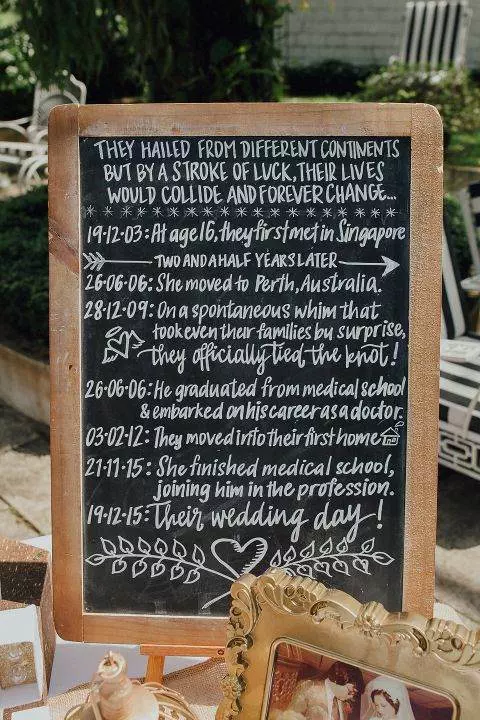 THEY HAILED FROM DIFFERENT CONTINENTS
BUT BY A STROKE OF LUCK, THEIR LIVES
WOULD COLLIDE AND FOREVER CHANGE...
19·12·03: At age 16, they first met in Singapore
TWO AND A HALF YEARS LATER
26·06·06: She moved to Perth, Australia.
28·12·09: On a spontaneous whim that
took even their families by surprise,
they officially tied the knot!
26·06·06: He graduated from medical school
& embarked on his career as a doctor.
03·02·12: They moved into their first home
21·11·15: She finished medical school,
joining him in the profession.
19·12·15: Their wedding day!